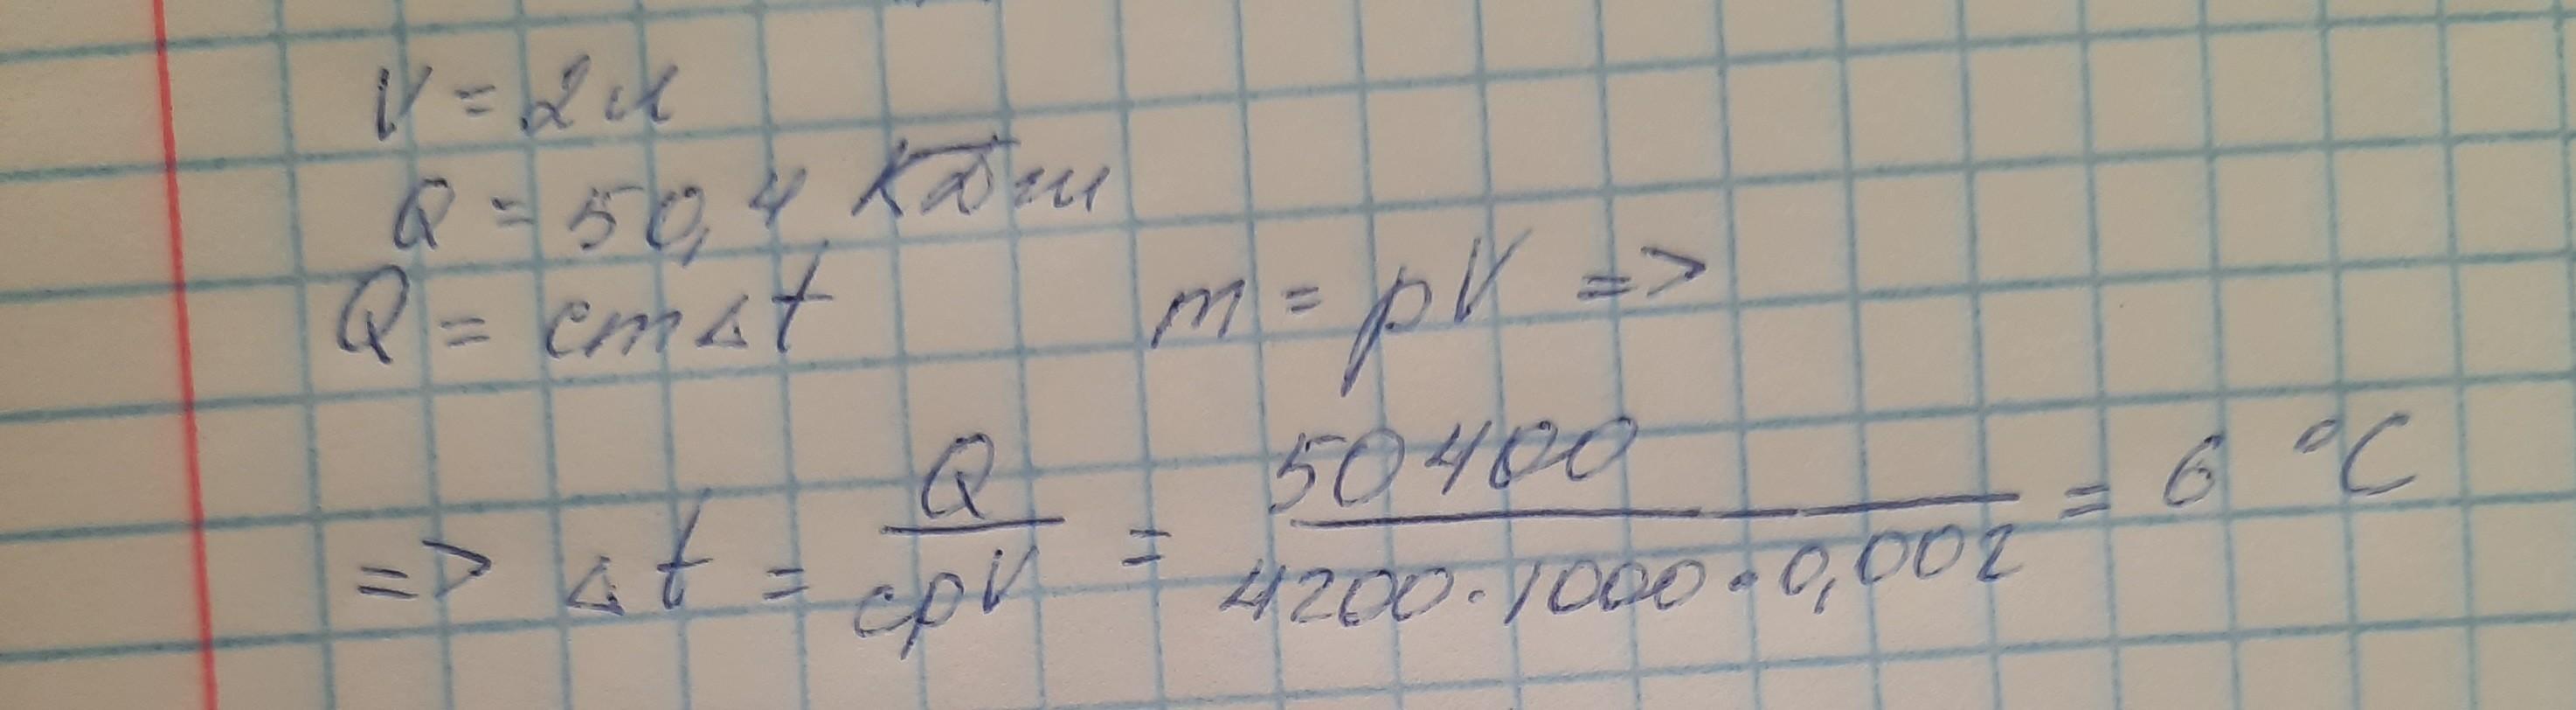 V = 2 л
Q = 50,4 КДж
Q = cm△t m = pV =>
=> △t = Q / cpV = 50400 / 4200 · 1000 · 0,002 = 6 °C